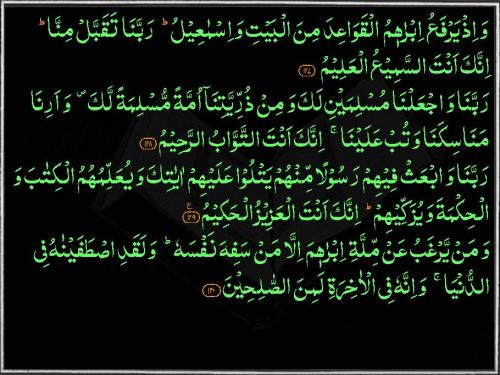 وَاِذۡ يَرۡفَعُ اِبۡرٰهٖمُ الۡقَوَاعِدَ مِنَ الۡبَيۡتِ وَاِسۡمٰعِيۡلُ ؕ رَبَّنَا تَقَبَّلۡ مِنَّا ؕ
اِنَّكَ اَنۡتَ السَّمِيۡعُ الۡعَلِيۡمُ ﴿۱۲۷﴾
رَبَّنَا وَاجۡعَلۡنَا مُسۡلِمَيۡنِ لَكَ وَ مِنۡ ذُرِّيَّتِنَآ اُمَّةً مُّسۡلِمَةً لَّكَ ۖ وَ اَرِنَا
مَنَاسِكَنَا وَ تُبۡ عَلَيۡنَا ۚ اِنَّكَ اَنۡتَ التَّوَّابُ الرَّحِيۡمُ ﴿۱۲۸﴾
رَبَّنَا وَ ابۡعَثۡ فِيۡهِمۡ رَسُوۡلًا مِّنۡهُمۡ يَتۡلُوۡا عَلَيۡهِمۡ اٰيٰتِكَ وَ يُعَلِّمُهُمُ الۡكِتٰبَ وَ
الۡحِكۡمَةَ وَ يُزَكِّيۡهِمۡ ؕ اِنَّكَ اَنۡتَ الۡعَزِيۡزُ الۡحَكِيۡمُ ﴿۱۲۹﴾ ع
وَ مَنۡ يَّرۡغَبُ عَنۡ مِّلَّةِ اِبۡرٰهٖمَ اِلَّا مَنۡ سَفِهَ نَفۡسَهٗ ؕ وَ لَقَدِ اصۡطَفَيۡنٰهُ فِى
الدُّنۡيَا ۚ وَ اِنَّهٗ فِى الۡاٰخِرَةِ لَمِنَ الصّٰلِحِيۡنَ ﴿۱۳۰﴾